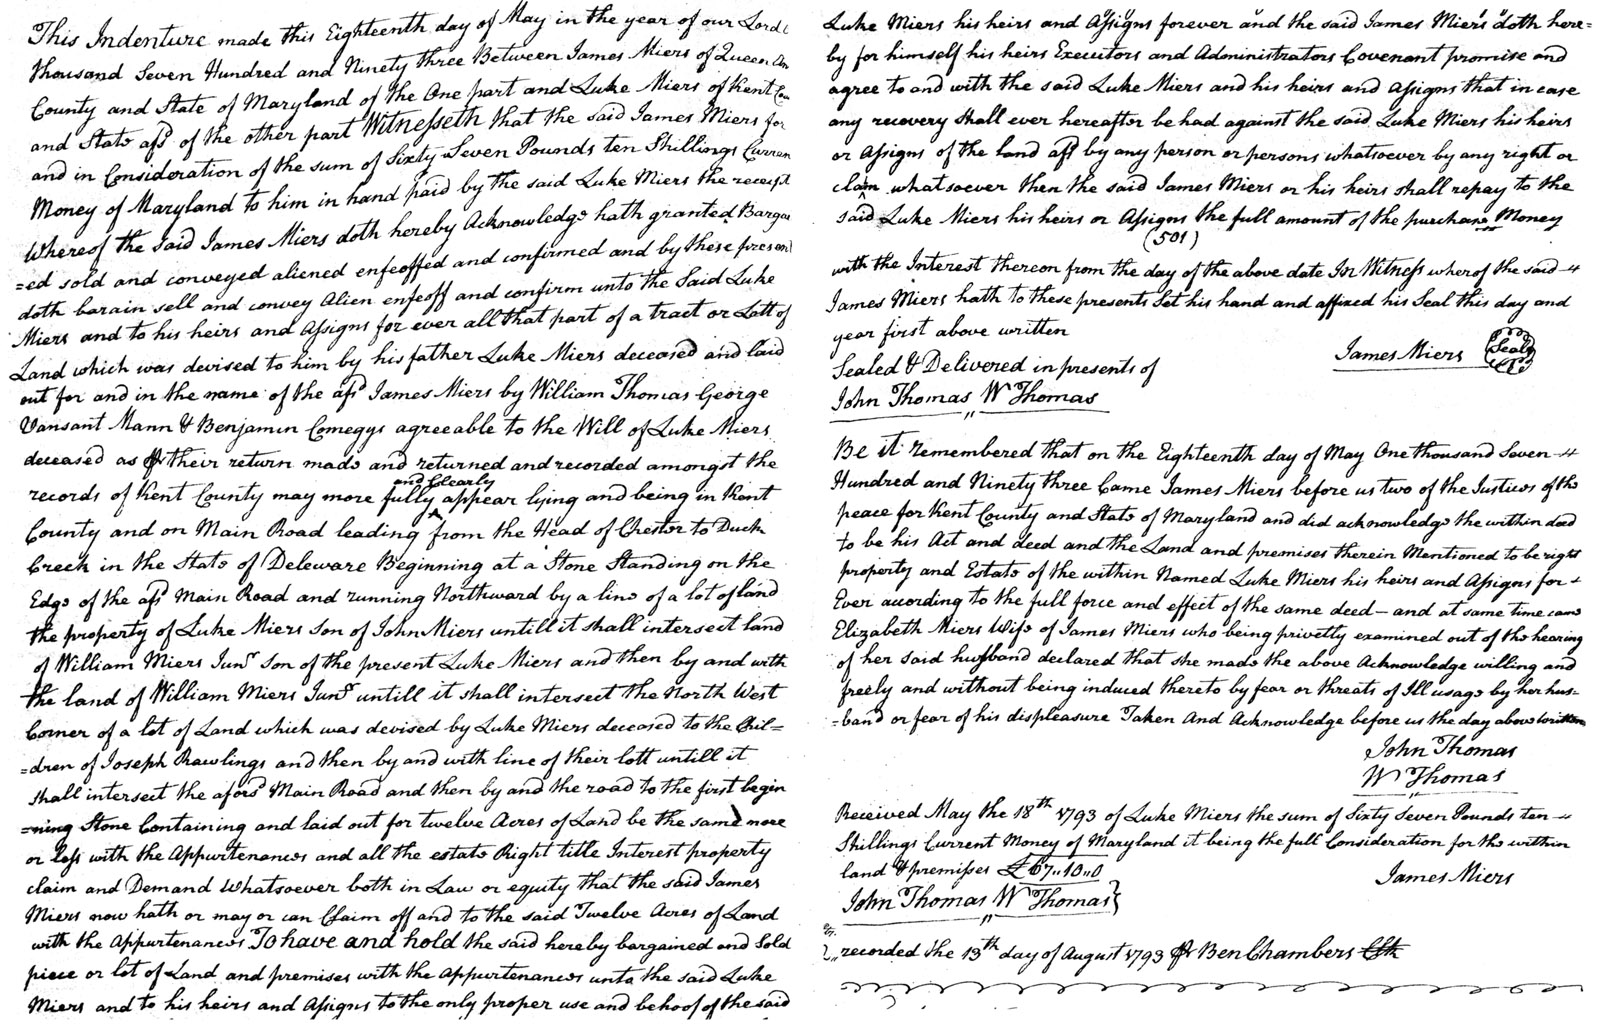 This Indenture made this Eighteenth day of May in the year of our Lord
thousand Seven Hundred and Ninety three Between James Miers of Queen An
County and State of Maryland of the One part and Luke Miers of Kent Cou
and State afsd of the other part Witnesseth that the said James Miers for
and in Consideration of the sum of Sixty Seven Pounds ten Shillings Curren
Money of Maryland to him in hand paid by the said Luke Miers the receipt
Whereof the said James Miers doth hereby Acknowledge hath granted Barga
=ed sold and conveyed aliened enfeoffed and confirmed and by these presen
doth barain sell and convey Alien enfeoff and confirm unto the Said Luke
Miers and to his heirs and Assigns for ever all that part of a tract or Lott of
Land which was devised to him by his father Luke Miers deceased and laid
out for and in the name of the afsd James Miers by William Thomas George
Vansant Mann & Benjamin Comegys agreeable to the Will of Luke Miers
deceased as pr their return made and returned and recorded amongst the
records of Kent County may more fully and Clearly appear lying and being in Kent
County and on Main Road leading from the Head of Chester to Duck
Creek in the State of Deleware Beginning at a Stone Standing on the
Edge of the afsd Main Road and running Northward by a line of a lot of land
the property of Luke Miers Son of John Miers untill it shall intersect land
of William Miers Junr son of the present Luke Miers and then by and with
the land of William Miers Junr untill it shall intersect the North West
Corner of a lot of Land which was devised by Luke Miers deceased to the Chil=
=dren of Joseph Rawlings and then by and with line of their lott untill it
shall intersect the aforsd Main Road and then by and the road to the first begin
=ning Stone Containing and laid out for twelve Acres of Land be the same more
or less with the Appurtenances and all the estate Right title Interest property
claim and Demand Whatsoever both in Law or equity that the said James
Miers now hath or may or can Claim off and to the said Twelve Acres of Land
with the Appurtenances To have and hold the said hereby bargained and Sold
piece or lot of Land and premises with the Appurtenances unto the said Luke
Miers and to his heirs and Assigns to the only proper use and behoof of the said
Luke Miers his heirs and Assigns forever and the said James Miers doth here=
by for himself his heirs Executors and Administrators Covenant promise and
agree to and with the said Luke Miers and his heirs and Assigns that in case
any recovery shall ever hereafter be had against the said Luke Miers his heirs
or Assigns of the land afsd by any person or persons whatsoever by any right or
claim whatsoever then the said James Miers or his heirs shall repay to the
said Luke Miers his heirs or Assigns the full amount of the purchase Money
(501)
with the Interest thereon from the day of the above date In Witness wherof the said
James Miers hath to these presents Set his hand and affixed his Seal this day and
year first above written
James Miers Seal
Sealed & Delivered in presents of
John Thomas W Thomas
Be it remembered that on the Eighteenth day of May One thousand Seven
Hundred and Ninety three Came James Miers before us two of the Justices of the
peace for Kent County and State of Maryland and did acknowledge the within deed
to be his Act and deed and the Land and premises therein Mentioned to be right
property and Estate of the within Named Luke Miers his heirs and Assigns for
Ever acording to the full force and effect of the same deed — and at same time came
Elizabeth Miers Wife of James Miers who being privetly examined out of the hearing
of her said husband declared that she made the above Acknowledge willing and
freely and without being induced thereto by fear or threats of Ill usage by her hus=
=band or fear of his displeasure Taken And Acknowledge before us the day above written
John Thomas
W Thomas
Received May the 18th 1793 of Luke Miers the sum of Sixty Seven Pounds ten
Shillings Current Money of Maryland it being the full Consideration for the within
land & premisses £67..10..0
James Miers
John Thomas W Thomas}
recorded the 13th day of August 1793 pr Ben Chambers Clk